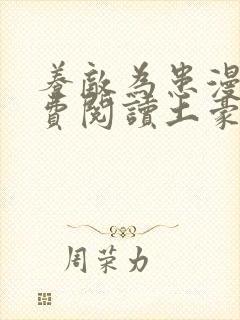 养敌为患漫
费阅读土豪
周荣力